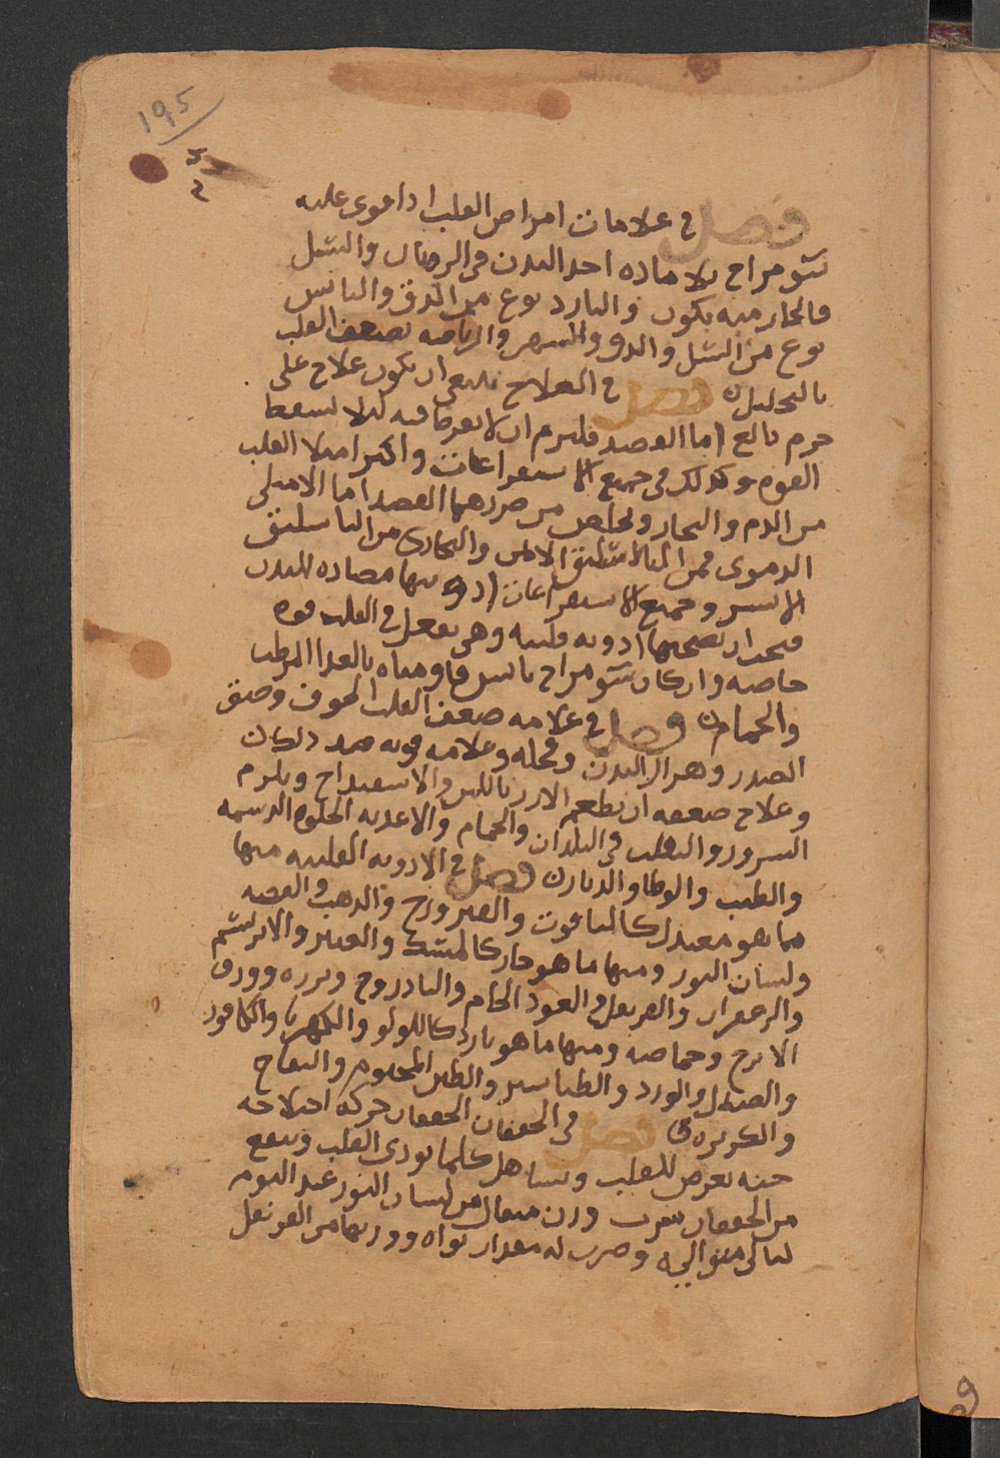 195
فصل في علامات امراض القلب اذا قوى عليه
سو مزاج بلا ماده احد البدن في الذوبان والسل
فالحار منه يكون والبارد نوع من الدق واليابس
نوع من السل والدق والسهر والرياضه تضعف القلب
بالتحليل فصل في العلاج ينبغي ان يكون علاج على
حزم بالغ اما الفصد فيلزم ان لا يفرط فيه ليلا تسقط
القوه وكذلك في جميع الاستفراغات واكثر امتلا القلب
من الدم والبخار ويخلص من ضررهما الفصد اما الامتلى
الدموى فمن الباسليق الايمن والبخارى من الباسليق
الايسر وجميع الاستفراغات ادويتها مضاده للبدن
فيجب ان تصحبها ادويه قلبيه وهى تفعل في القلب قوه
خاصه وان كان سو مزاج يابس قاومناه بالغذا المرطب
والحمام فصل في علامه ضعف القلب الخوف وضيق
الصدر وهزال البدن ونحله وعلامه قوته ضد ذلك
وعلاج ضعفه ان يطعم الارز باللبن والاسفيداج ويلزم
السرور والتقلب في البلدان والحمام والاغذيه الحلوه الدسمه
والطيب فصل في الادويه القلبيه منها
ما هو معتدل كالياقوت والفيروزج والذهب والفضه
ولسان الثور ومنها ما هو حار كالمسك والعنبر والابريسم
والزعفران والقرنفل والعود الخام والبادروج وبزره وورق
الاترج وحماضه ومنها ما هو بارد كاللولو والكهربا والكافور
والصندل والورد والطباشير والطين المختوم والتفاح
والكزبره فصل في الخفقان الخفقان حركه اختلاجيه
تعرض للقلب كلما يوذى القلب وينفع
من الخفقان شرب وزن مثقال من لسان الثور عند النوم
ليالى متواليه وشرب له مقدار نواه ووزنهما من القرنفل